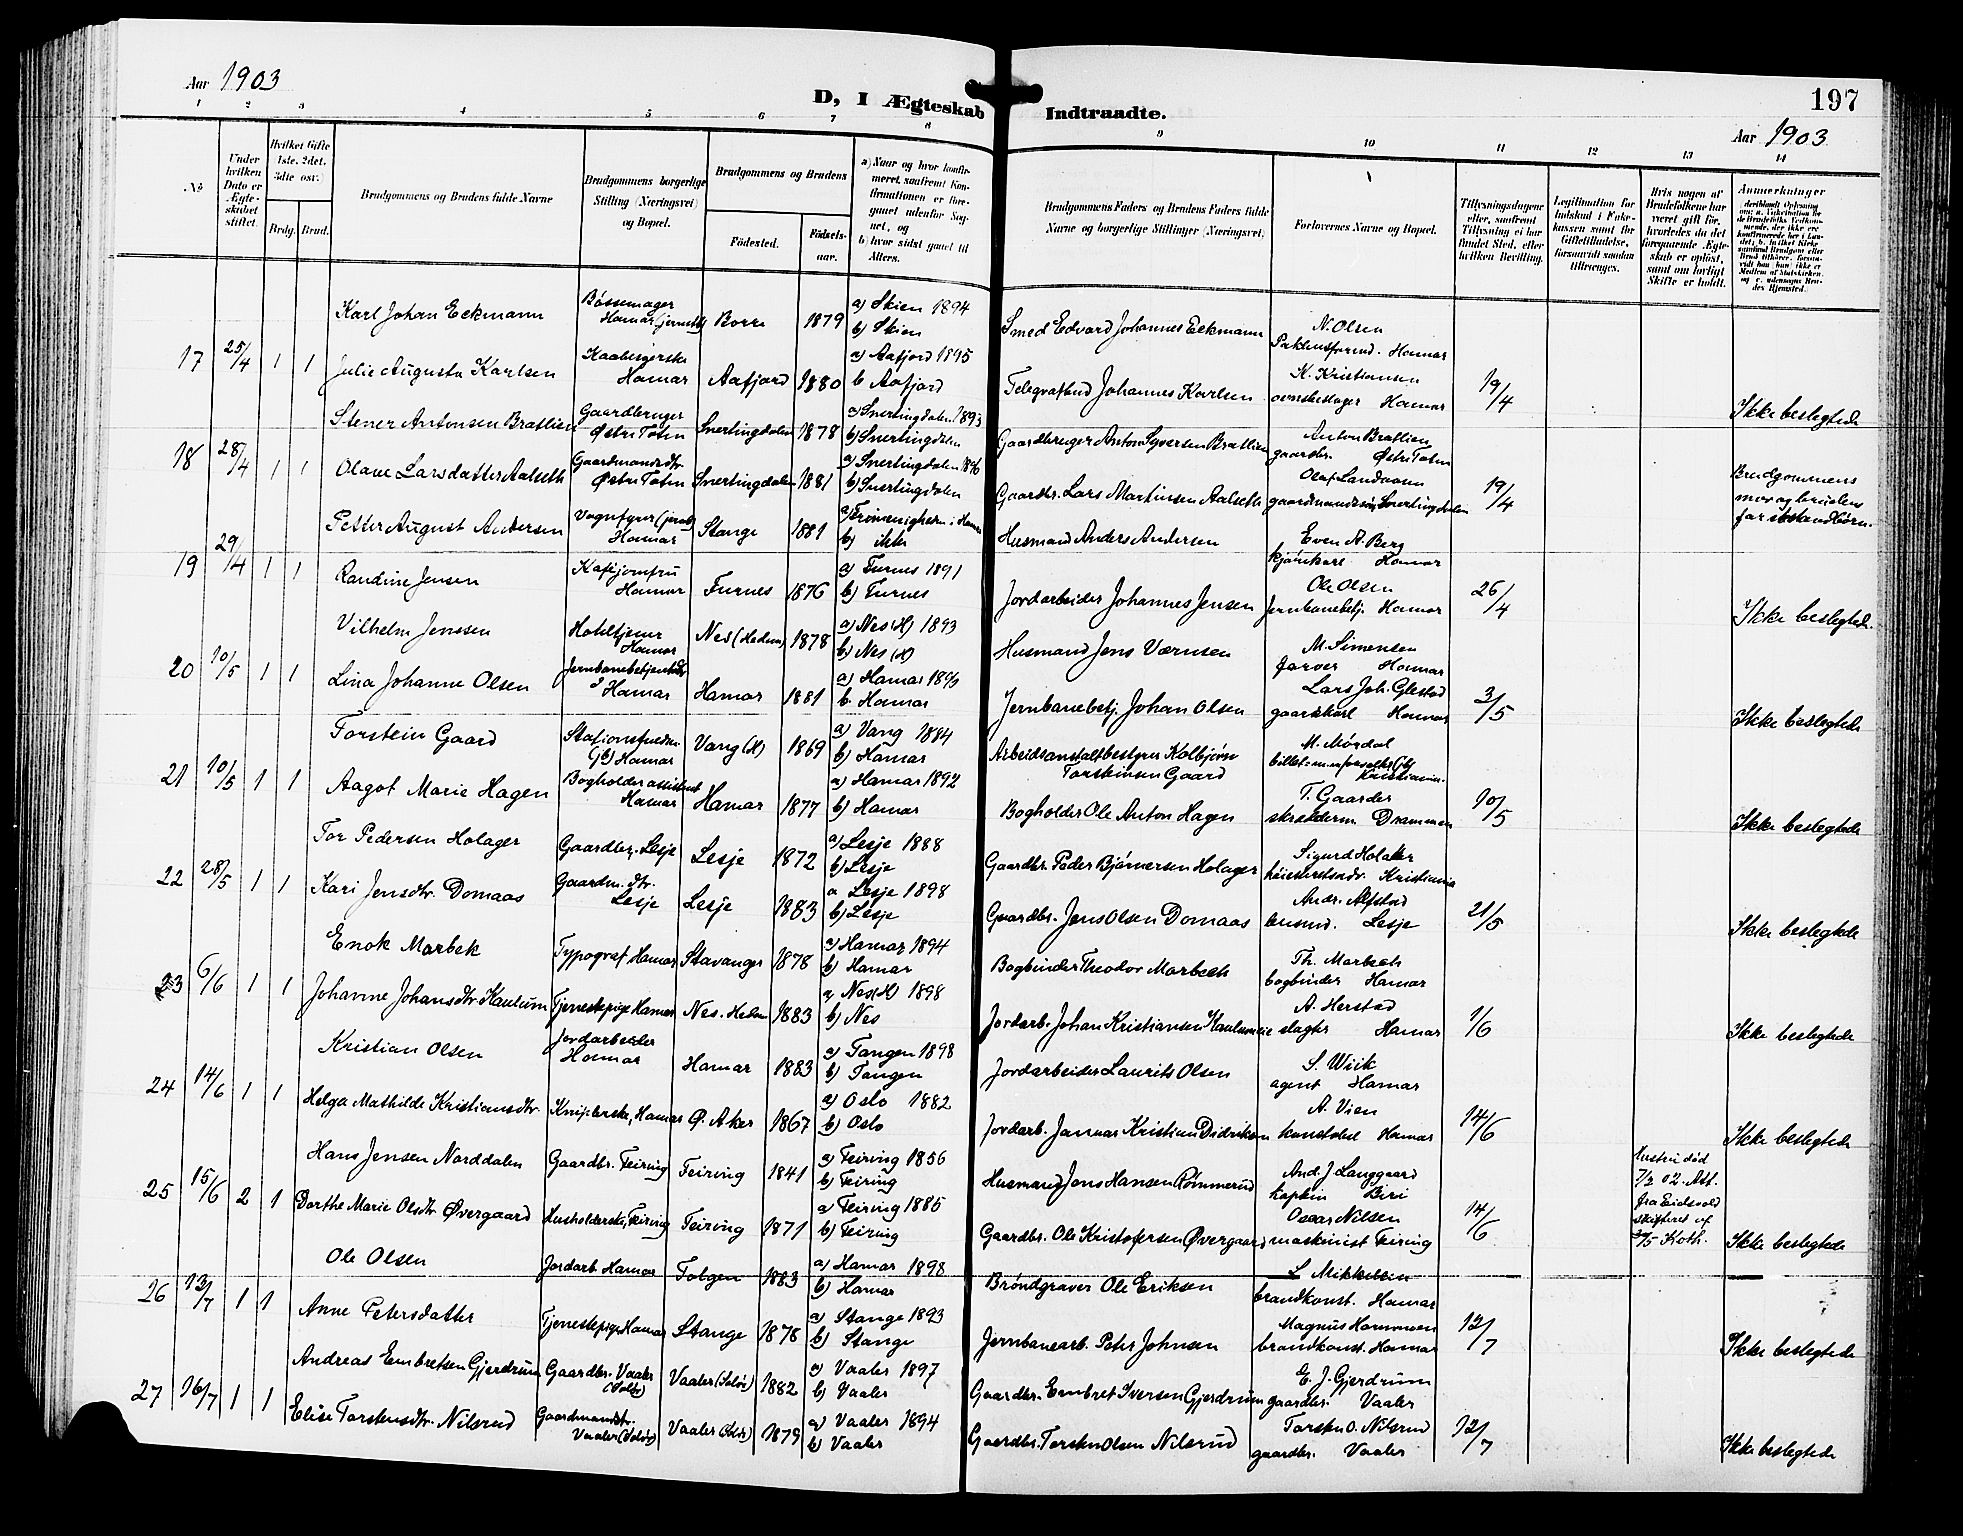 Aar 1903
D, I Ægteskab Indtraadte.
197
Aar 1903
1 2 3 4 5 6 7 8 9 10 11 12 13 14
No
Under hvilken Dato er Ægteskabet stiftet.
Hvilket Gifte 1ste, 2det, 3die osv.)
Brdg. Brud.
Brudgommens og Brudens fulde Navne
Brudgommens borgerlige Stilling (Næringsvei) og Bopæl.
Brudgommens og Brudens
Födested. Födsels-aar.
a) Naar og hvor konfirmeret, saafremt Konfirmationen er foregaaet udenfor Sognet, og
b) hvor sidst gaaet til Alters.
Brudgommens Faders og Brudens Faders fulde Navne og borgerlige Stillinger (Næringsvei)
Forlovernes Navne og Bopæl.
Tillysningsdagene eller, saafremt Tillysning ei har fundet Sted, efter hvilken Bevilling.
Legitimation for Indskud i Enkekassen samt for Giftetilladelse, forsaavidt saadan tiltrænges.
Hvis nogen af Brudefolkene har været gift för, hvorledes da det foregaaende Ægteskab er oplöst, samt om lovligt Skifte er holdt.
Anmerkninger
Karl Johan Eckmann Bøssemager Hamar Borre 1879 a) Skien 1894 b) Skien Smed Edvard Johannes Eckmann N. Olsen Hamar
17 25/4 1 1 Julie Augusta Karlsen Kaabesyerske Hamar Aafjord 1880 a) Aafjord 1895 b Aafjord Telegrafbud Johannes Karlsen K. Kristiansen Hamar 19/4 Ikke beslegtede
Stener Antonsen Bratlien Gaardbruger Østre Toten Snertingdalen 1878 a) Snertingdalen 1893 b) Snertingdalen Gaardbruger Anton Syversen Bratlien Anton Bratlien gaardbr. Østre Toten
18 28/4 1 1 Olave Larsdatter Aalseth Gaardmandsdtr. Østre Toten Snertingdalen 1881 a) Snertingdalen 1896 b) Snertingdalen Gaardbr. Lars Martinsen Aalseth Olaf Landaasen gaardmandssøn Snertingdalen 19/4 Brudgommens mor og brudens far søskendbørn.
Petter August Andersen Vognfyrer Hamar Stange 1881 a) Frimenigheden i Hamar b) ikke Husmand Anders Andersen Even A. Berg kjørekarl Hamar
19 29/4 1 1 Randine Jensen Kafejomfru Hamar Furnes 1876 a) Furnes 1891 b) Furnes Jordarbeider Johannes Jensen Ole Olsen Jernbanebetj. Hamar 26/4 Ikke beslegtede.
Vilhelm Jenssen Hoteltjener Hamar Nes (Hedem) 1878 a) Nes (H) 1893 b) Nes (H) Husmand Jens Værnsen M. Simensen farver Hamar
20 10/5 1 1 Lina Johanne Olsen Hamar Hamar 1881 a) Hamar 1896 b. Hamar Jernbanebetj. Johan Olsen Lars Joh. Glestad gaardskarl Hamar 3/5 Ikke beslegtede
Torstein Gaard Hamar Vang (H) 1869 a) Vang 1884 b) Hamar Arbeidsanstaltbestyrer Kolbjørn Torstensen Gaard M. Mørdal Kristiania
21 10/5 1 1 Aagot Marie Hagen Bogholderassistent Hamar Hamar 1877 a) Hamar 1892 b) Hamar Bogholder Ole Anton Hagen T. Gaarder skrædderm. Drammen 10/5 Ikke beslegtede
Tor Pedersen Holager Gaardbr. Lesje Lesje 1872 a) Lesje 1888 b) Lesje Gaardbr. Peder Bjørnersen Holager Sigurd Holaker Kristiania
22 28/5 1 1 Kari Jensdtr. Domaas Gaardm. dtr. Lesje Lesje 1883 a Lesje 1898 b) Lesje Gaardbr. Jens Olsen Domaas Andr. Alfstad Lesje 21/5 Ikke beslegtede
Enok Marbek Typograf Hamar Stavanger 1878 a) Hamar 1894 b) Hamar Bogbinder Theodor Marbech Th. Marbech bogbinder Hamar
23 6/6 1 1 Johanne Johansdtr Kaulum Tjenestepige Hamar Nes. Hedm 1883 a) Nes (H) 1898 b) Nes Jordarb. Johan Kristiansen A. Herstad slagter Hamar 1/6 Ikke beslegtede
Kristian Olsen Jordarbeider Hamar Hamar 1883 a) Tangen 1898 b) Tangen Jordarbeider Laurits Olsen S. Wiik agent Hamar
24 14/6 1 1 Helga Mathilde Kristiansdtr. Kniplerske, Hamar Ø. Aker 1867 a) Oslo 1882 b) Oslo Jordarb. Januar Kristian Didriksen A. Vien konstabel Hamar 14/6 Ikke beslegtede
Hans Jensen Norddalen Gaardbr. Feiring Feiring 1841 a) Feiring 1856 b) Feiring Husmand Jens Hansen Rømmerud And. J. Langgaard Biri
25 15/6 2 1 Dorthe Marie Olsdtr Øvergaard Husholderske, Feiring Feiring 1871 a Feiring 1885 b) Feiring Gaardbr. Ole Kristofersen Øvergaard Oscar Nilsen maskinist Feiring 14/6 Hustru død 7/3 02. Att. fra Eidsvold skifteret af Ikke beslegtede
Ole Olsen Jordarb. Hamar Tolgen 1883 a) Hamar 1898 b) Hamar Brøndgraver Ole Eriksen L Mikkelsen brandkonst. Hamar
26 13/7 1 1 Anne Petersdatter Tjenestepige Hamar Stange 1878 a) Stange 1893 b) Stange Jernbanearb. Peter Johnsen Magnus brandkonst. Hamar 12/7 Ikke beslegtede
Andreas Embretsen Gjerdrum Gaardbr. Vaaler (Solør) Vaaler (Solør) 1882 a) Vaaler 1897 b) Vaaler Gaardbr. Embret Iversen Gjerdrum E. J. Gjerdrum gaardbr. Vaaler
27 16/7 1 1 Elise Torstensdtr. Nilsrud Gaardmandsdtr. Vaaler (Solør) Vaaler (Solør) 1879 a) Vaaler 1894 b) Vaaler Gaardbr. Torsten Olsen Nilsrud Torsten O. Nilsrud gaardbr. Vaaler 12/7 Ikke beslegtede